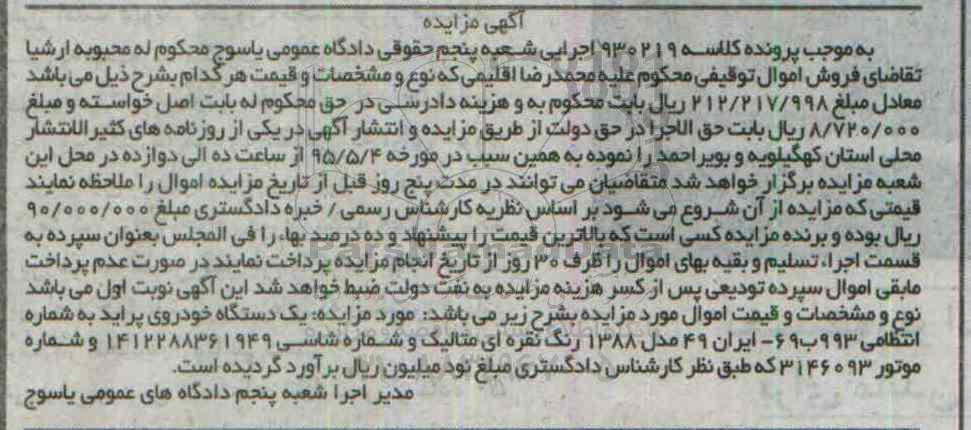 آگهی مزایده
به موجب پرونده کلاسه ۹۳۰۲۱۹ اجرایی شعبه پنجم حقوقی دادگاه عمومی یاسوج محکوم له محبوبه ارشیا
تقاضای فروش اموال توقیفی محکوم علیه محمدرضا اقلیمی که نوع و مشخصات و قیمت هر کدام بشرح ذیل می باشد
معادل مبلغ ۲۱۲/۲۱۷/۹۹۸ ریال بابت محکوم به و هزینه دادرسی در حق محکوم له بابت اصل خواسته و مبلغ
۸/۷۲۰/۰۰۰ ریال بابت حق الاجرا در حق دولت از طریق مزایده و انتشار آگهی در یکی از روزنامه های کثیرالانتشار
محلی استان کهگیلویه و بویراحمد را نموده به همین سبب در مورخه ۹۵/۵/۴ از ساعت ده الی دوازده در محل این
شعبه مزایده برگزار خواهد شد متقاضیان می توانند در مدت پنج روز قبل از تاریخ مزایده اموال را ملاحظه نمایند
قیمتی که مزایده از آن شروع می شود بر اساس نظریه کارشناس رسمی / خبره دادگستری مبلغ ۹۰/۰۰۰/۰۰۰
ریال بوده و برنده مزایده کسی است که بالاترین قیمت را پیشنهاد و ده درصد بهاء را فی المجلس بعنوان سپرده به
قسمت اجراء تسلیم و بقیه بهای اموال را ظرف ۳۰ روز از تاریخ انجام مزایده پرداخت نمایند در صورت عدم پرداخت
مابقی اموال سپرده تودیعی پس از کسر هزینه مزایده به نفت دولت ضبط خواهد شد این آگهی نوبت اول می باشد
نوع و مشخصات و قیمت اموال مورد مزایده بشرح زیر می باشد: مورد مزایده: یک دستگاه خودروی پراید به شماره
انتظامی ۹۹۳ب۶۹- ایران ۴۹ مدل ۱۳۸۸ رنگ نقره ای متالیک و شماره شاسی ۱۴۱۲۲۸۸۳۶۱۹۴۹ و شماره
موتور ۳۱۴۶۰۹۳ که طبق نظر کارشناس دادگستری مبلغ نود میلیون ریال برآورد گردیده است.
مدیر اجرا شعبه پنجم دادگاه های عمومی یاسوج